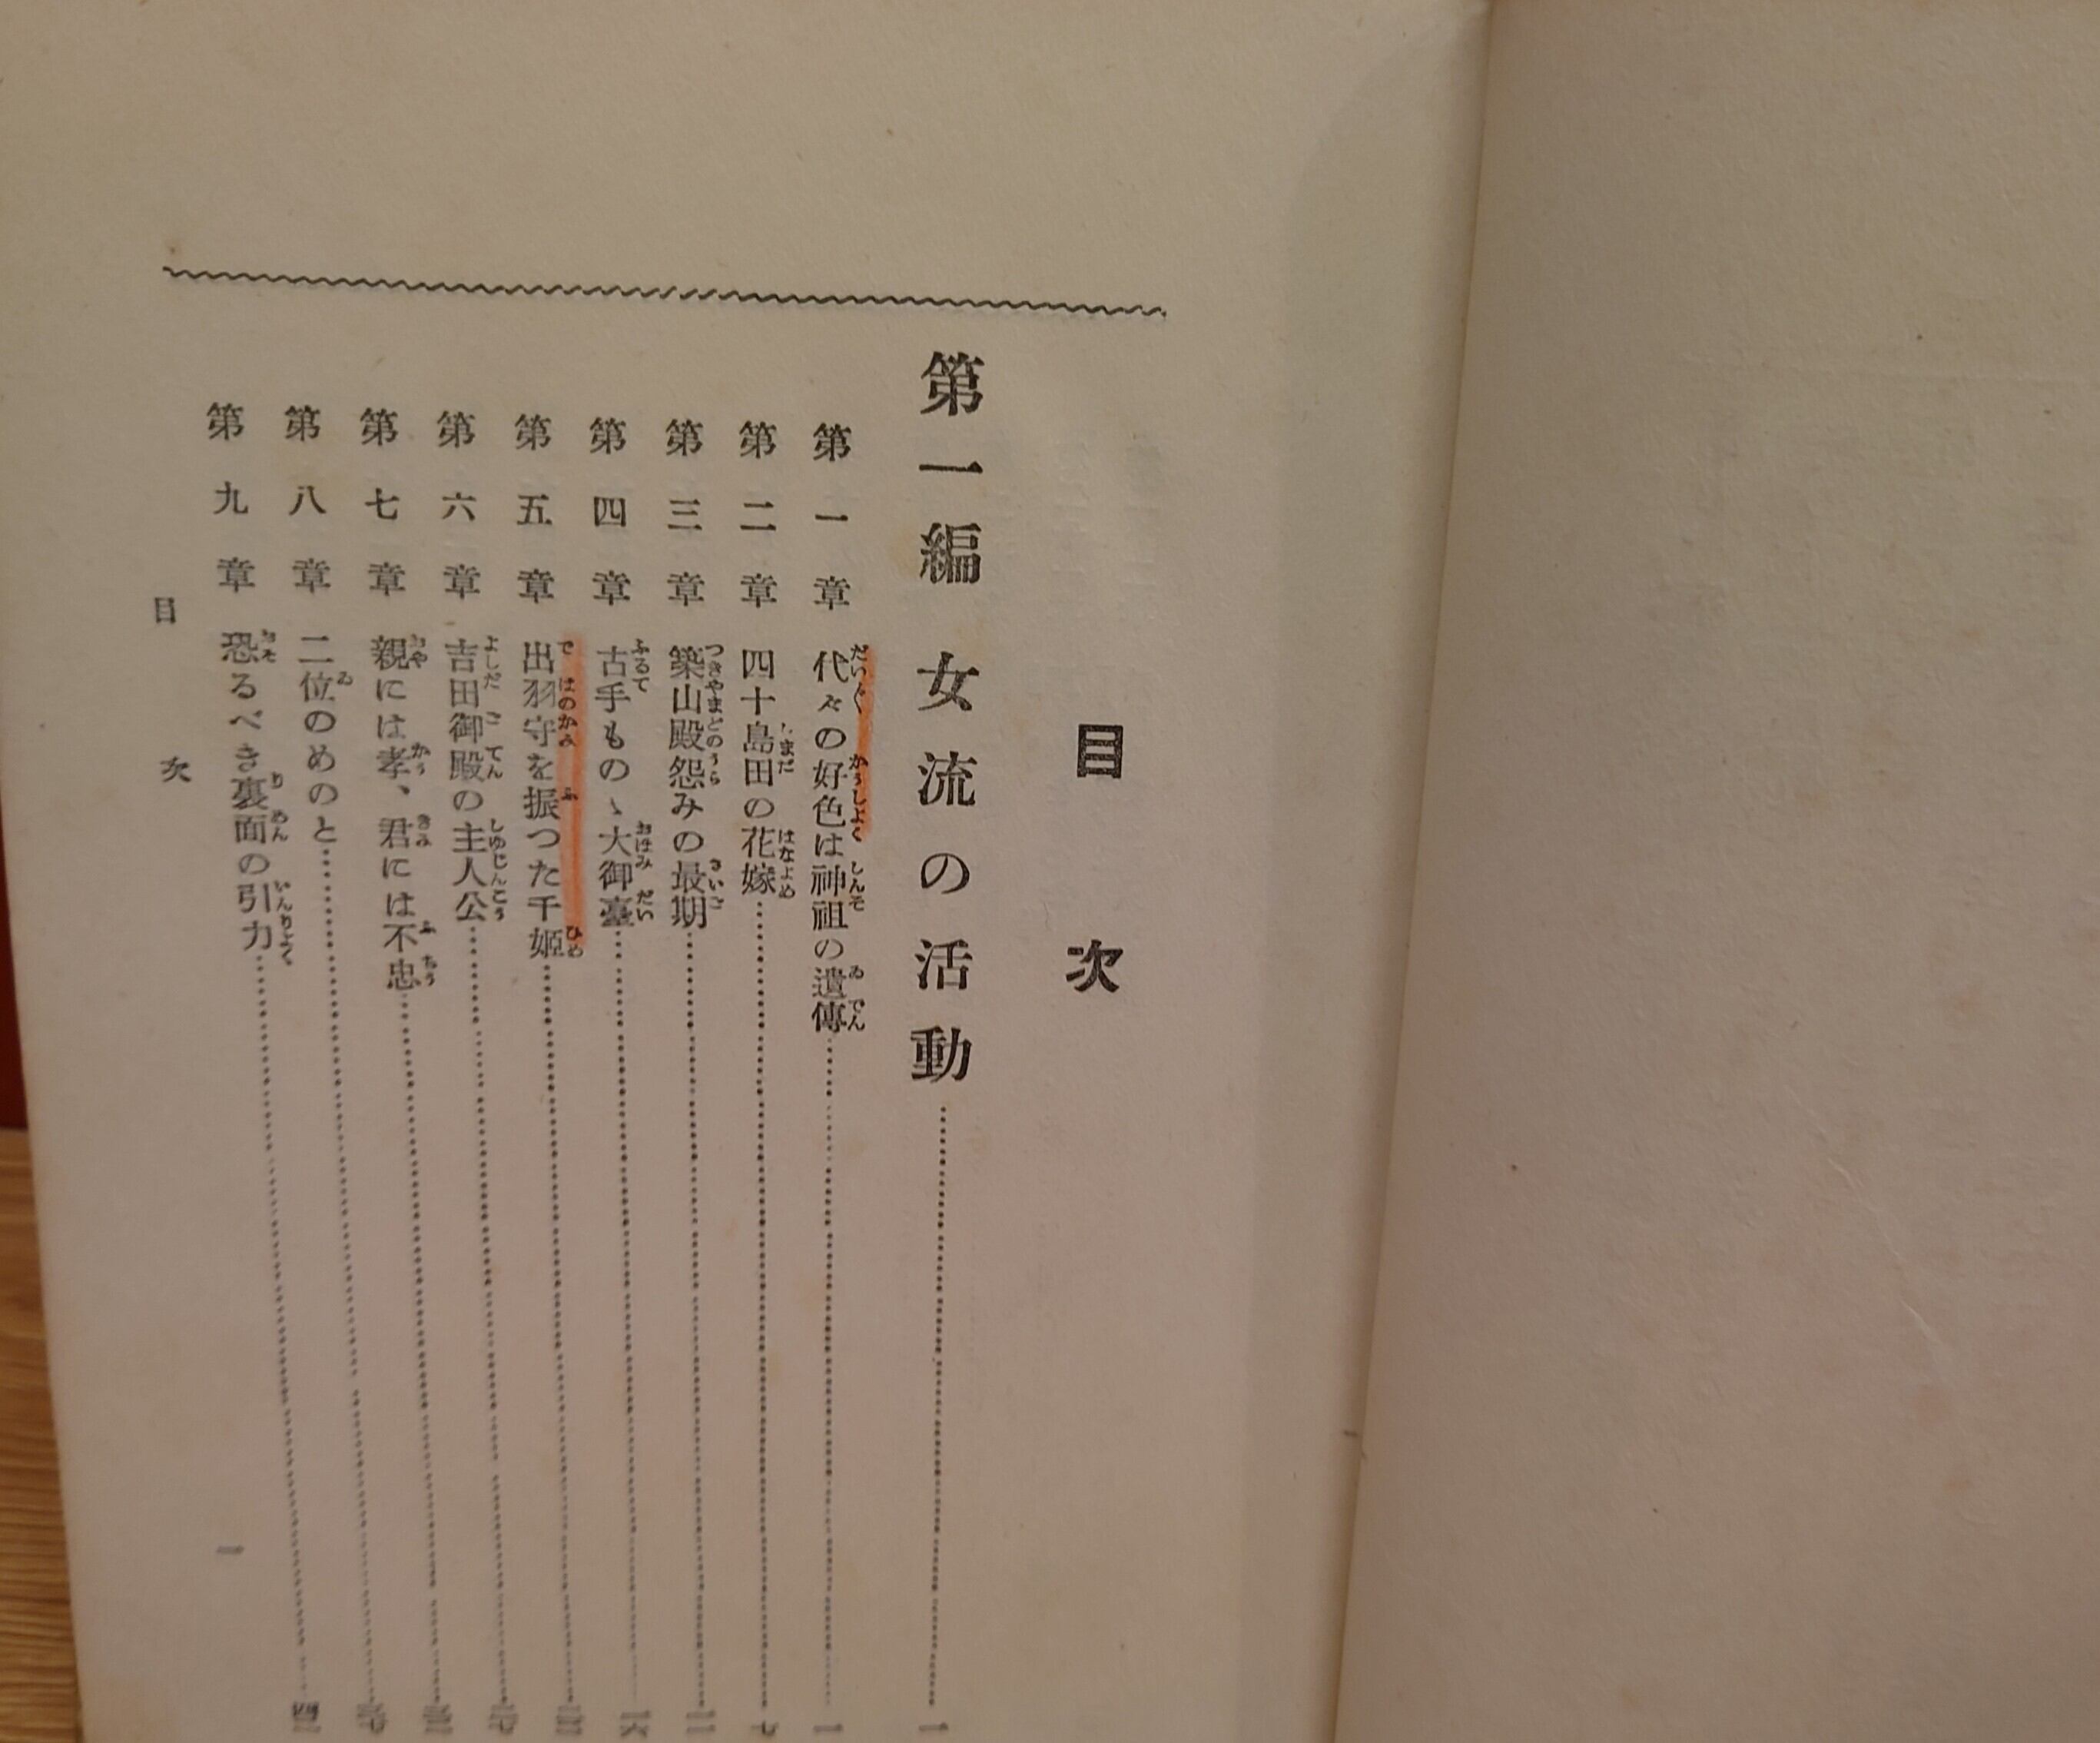 目次
第一編 女流の活動……一
第一章 代々の好色は神祖の遺傳……一
第二章 四十島田の花嫁……
第三章 築山殿怨みの最期……
第四章 古手もの、大御臺……
第五章 出羽守を振つた千姫……
第六章 吉田御殿の主人公……
第七章 親には孝、君には不忠……
第八章 二位のめのと……
第九章 恐るべき裏面の引力……
目次
一